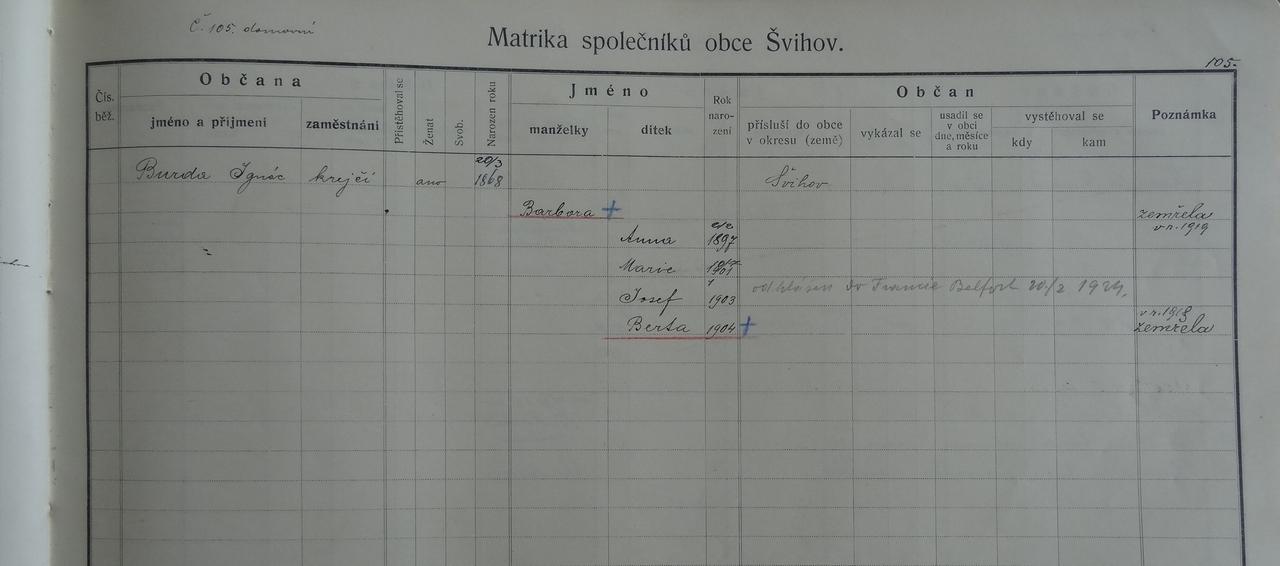 Č. 105. domovní
Matrika společníků obce Švihov.
105.
Čís. běž.
Občana
jméno a přijmení
zaměstnání
Přistěhoval se
Ženat
Svob.
Narozen roku
Jméno
manželky
dítek
Rok naro- zení
Občan
přísluší do obce v okresu (země)
vykázal se
usadil se v obci dne, měsíce a roku
vystěhoval se
kdy
kam
Poznámka
Burda Ignác krejčí ano 20/3 1868 Švihov
Barbora + zemřela v r. 1919
Anna 1897
Marie 1901
Josef 1903 odhlášen do Francie Belfort 20/2 1924.
Berta 1904 + v r. 1918 zemřela